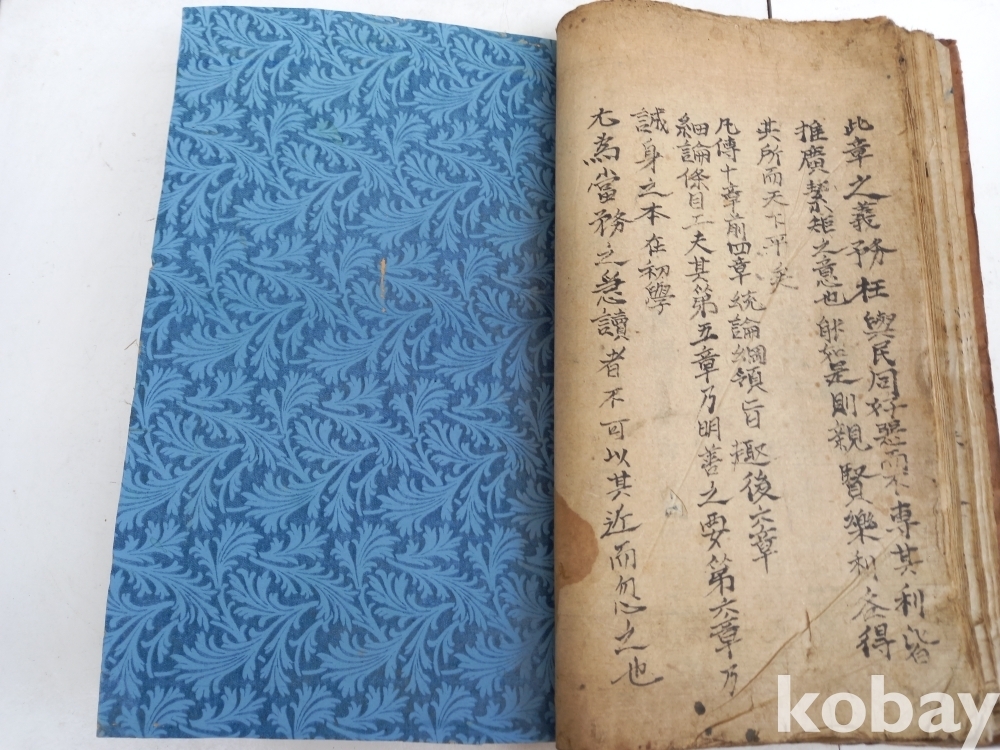 此章之義務在與民同好惡而不專其利皆
推廣絜矩之意也能如是則親賢樂利各得
其所而天下平矣
凡傳十章前四章統論綱領旨趣後六章
細論條目工夫其第五章乃明善之要第六章乃
誠身之本在初學
尤為當務之急讀者不可以其近而忽之也
kobay